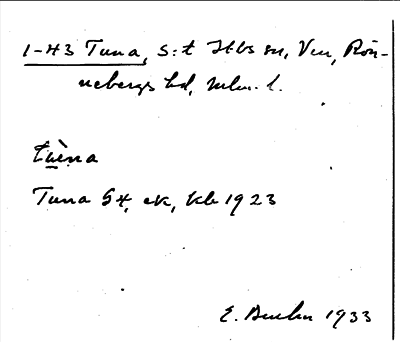 1-43 Tuna, S:t Ibbs sn, Ven, Rön-
nebergs hd, Mlm. l.
tùǹna
Tuna Gt, ek, kb 1923
E. 1933